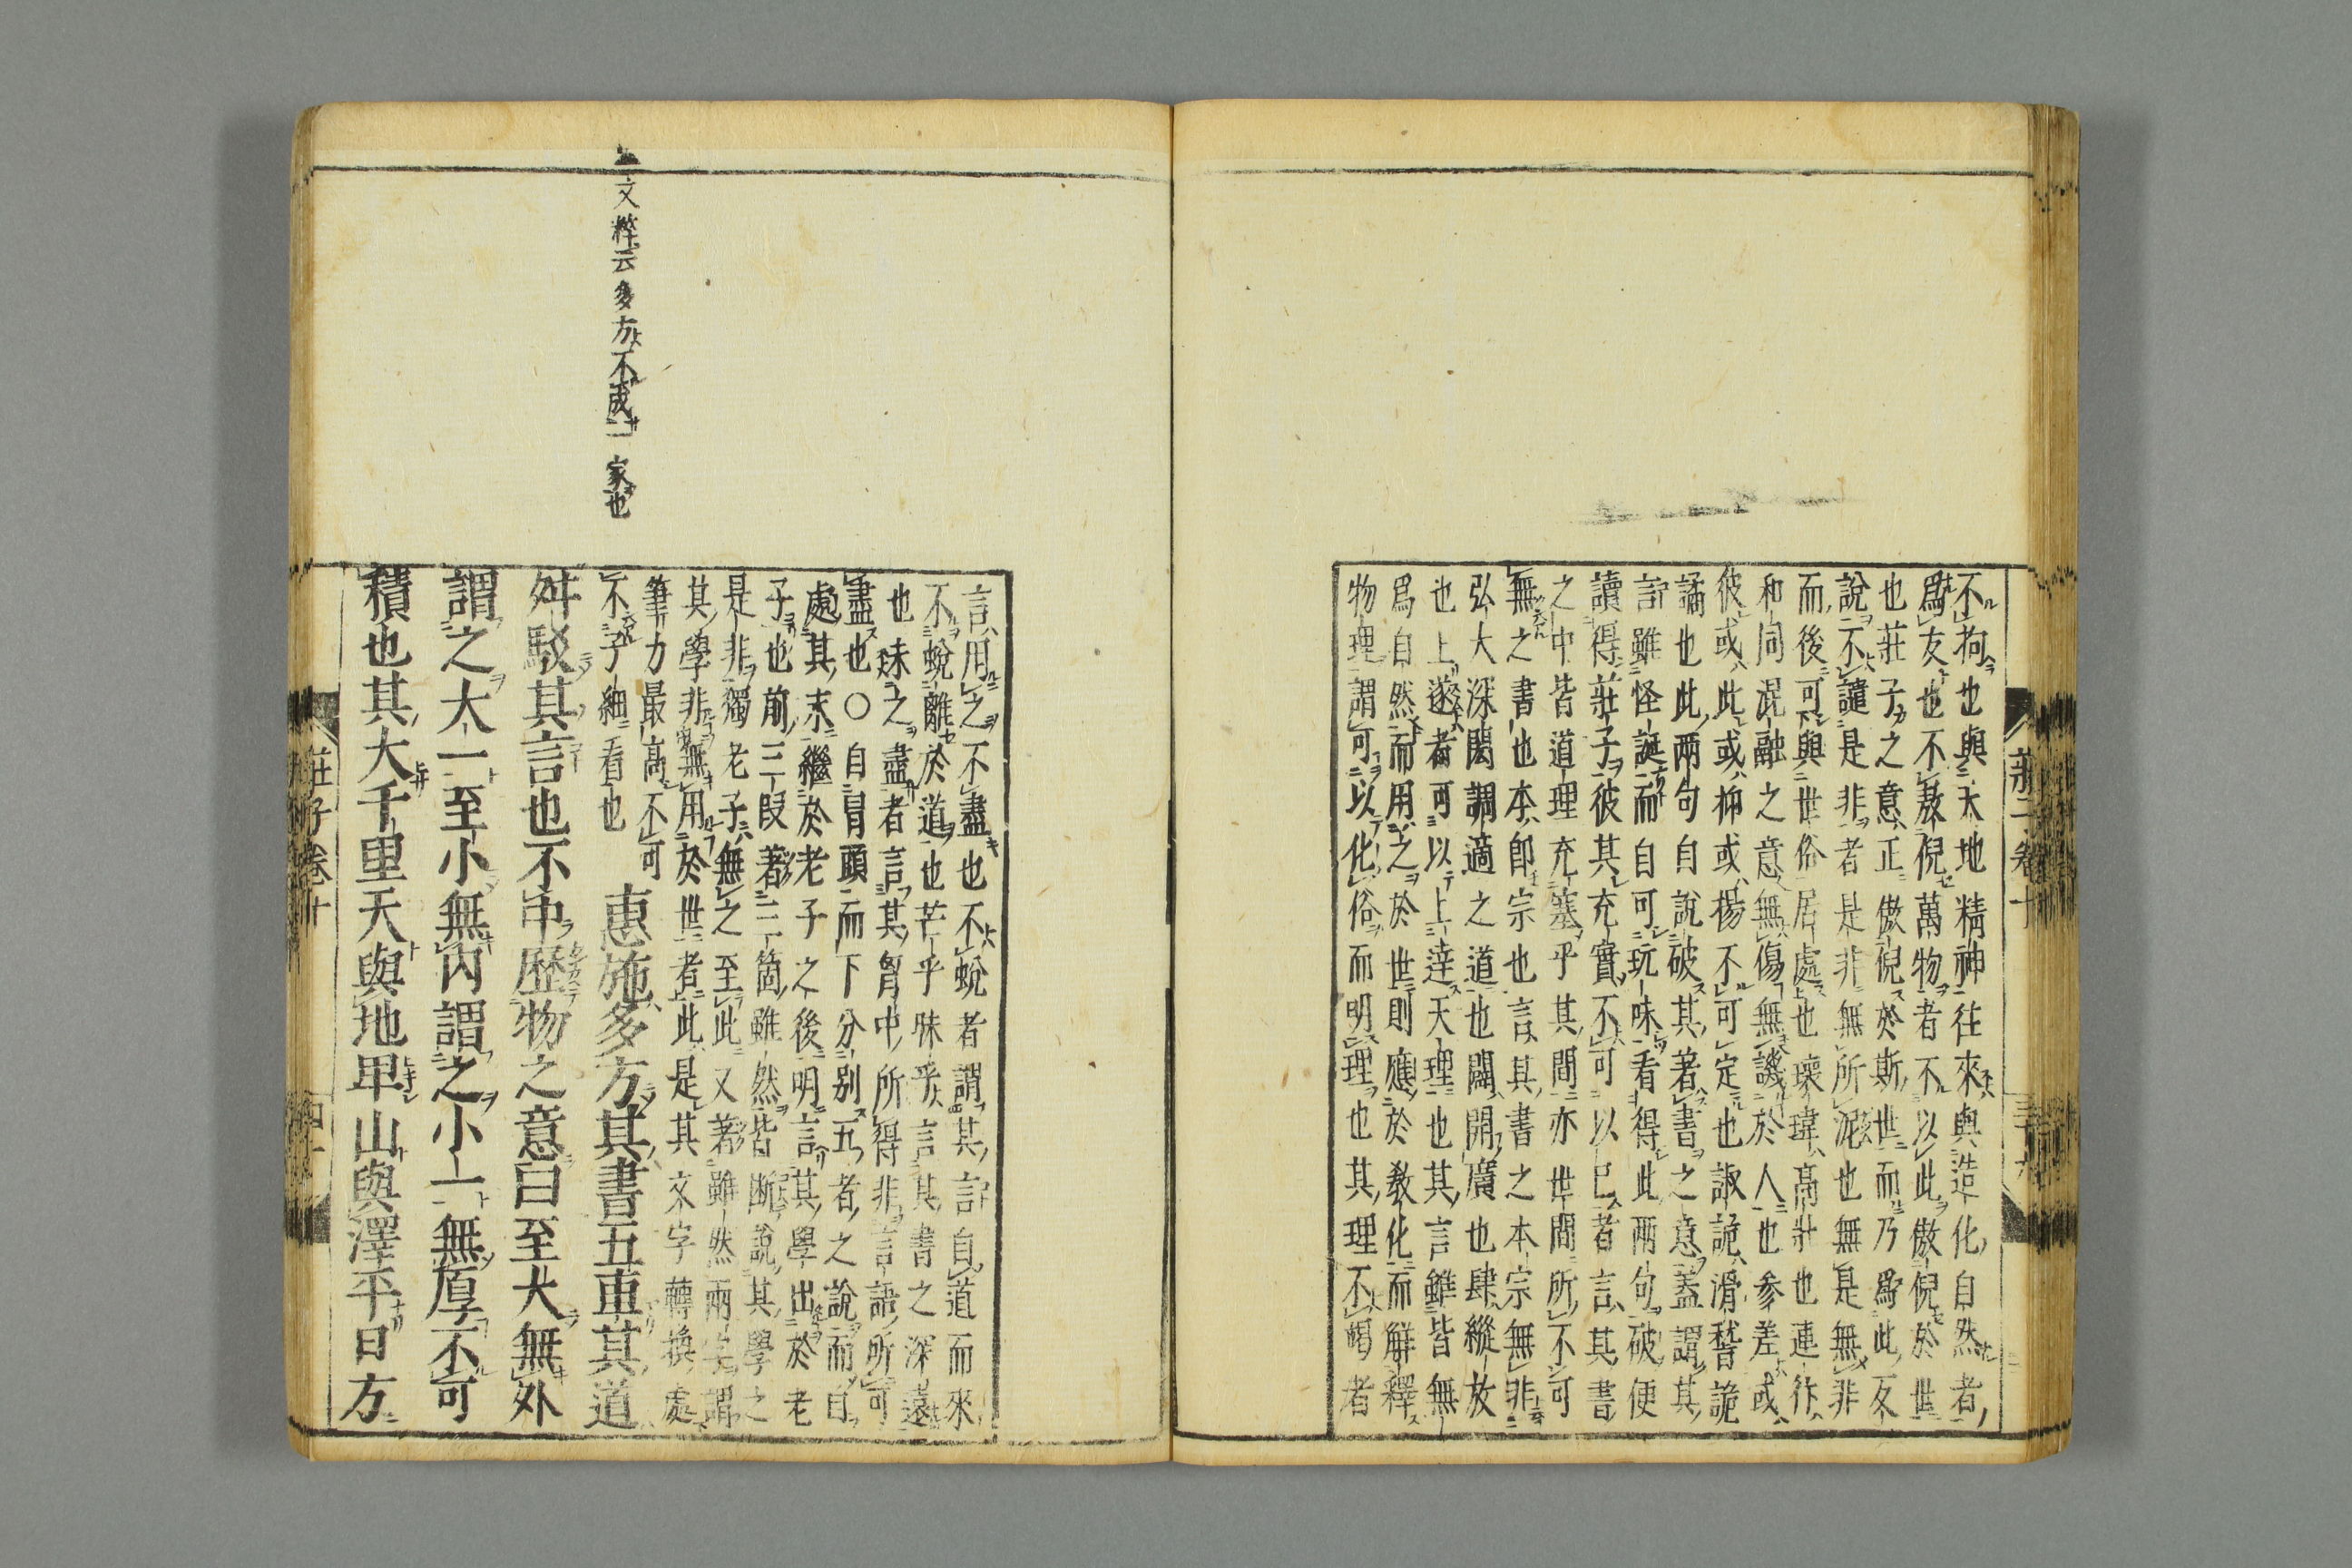 不拘也與天地精神往來與造化自然者
爲友也不敖倪萬物者不以此傲倪於世
也莊子之意正傲倪於斯世而乃爲此友
說不譴是非者是非無所泥也無是無非
而後可與世俗居處也瓌瑋高壯也連犿
和同混融之意無傷無譏於人也參差或
彼或此或抑或揚不可定也諔詭滑稽詭
譎也此兩句自說破其著書之意蓋謂其
言雖怪誕而自可玩味看得此兩句破便
讀得莊子彼其充實不可以已者言其書
之中皆道理充塞乎其間亦世間所不可
無之書也本卽宗也言其書之本宗無非
弘大深閎調適之道也闢開廣也肆縱放
也上遂者可以上達天理也其言雖皆無
爲自然而用之於世則應於教化而解釋
物理謂可以化俗而明理也其理不竭者
莊子卷十
三十九
言用之不盡也不蛻者謂其言自道而來
不蛻離於道也芒乎昧乎言其書之深遠
也未之盡者言其胷中所得非言語所可
盡也○自冒頭而下分別五者之說而自
處其末繼於老子之後明言其學出於老
子也前三段著三箇雖然皆斷說其學之
是非獨老子無之至此又著雖然兩字謂
其學非無用於世者此是其文字轉換處
筆力最高不可
不子細看也
惠施多方其書五車其道
舛駁其言也不中歷物之意曰至大無外
謂之大一至小無內謂之小一無厚不可
積也其大千里天與地卑山與澤平日方
文粹云多方不成一家也
莊子卷十
四十